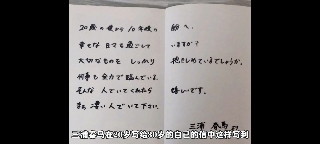 20歳の僕から10年後の
幸せな日々を過ごして
大切なものを しっかり
何事も全力で臨んでいる
そんな人でいてくれたら
きっと凄い人でいて下さい。
師へ。
いますか？
抱きしめているでしょうか。
嬉しいです。
三浦 春馬
三浦春马在20岁写给30岁的自己的信中这样写到